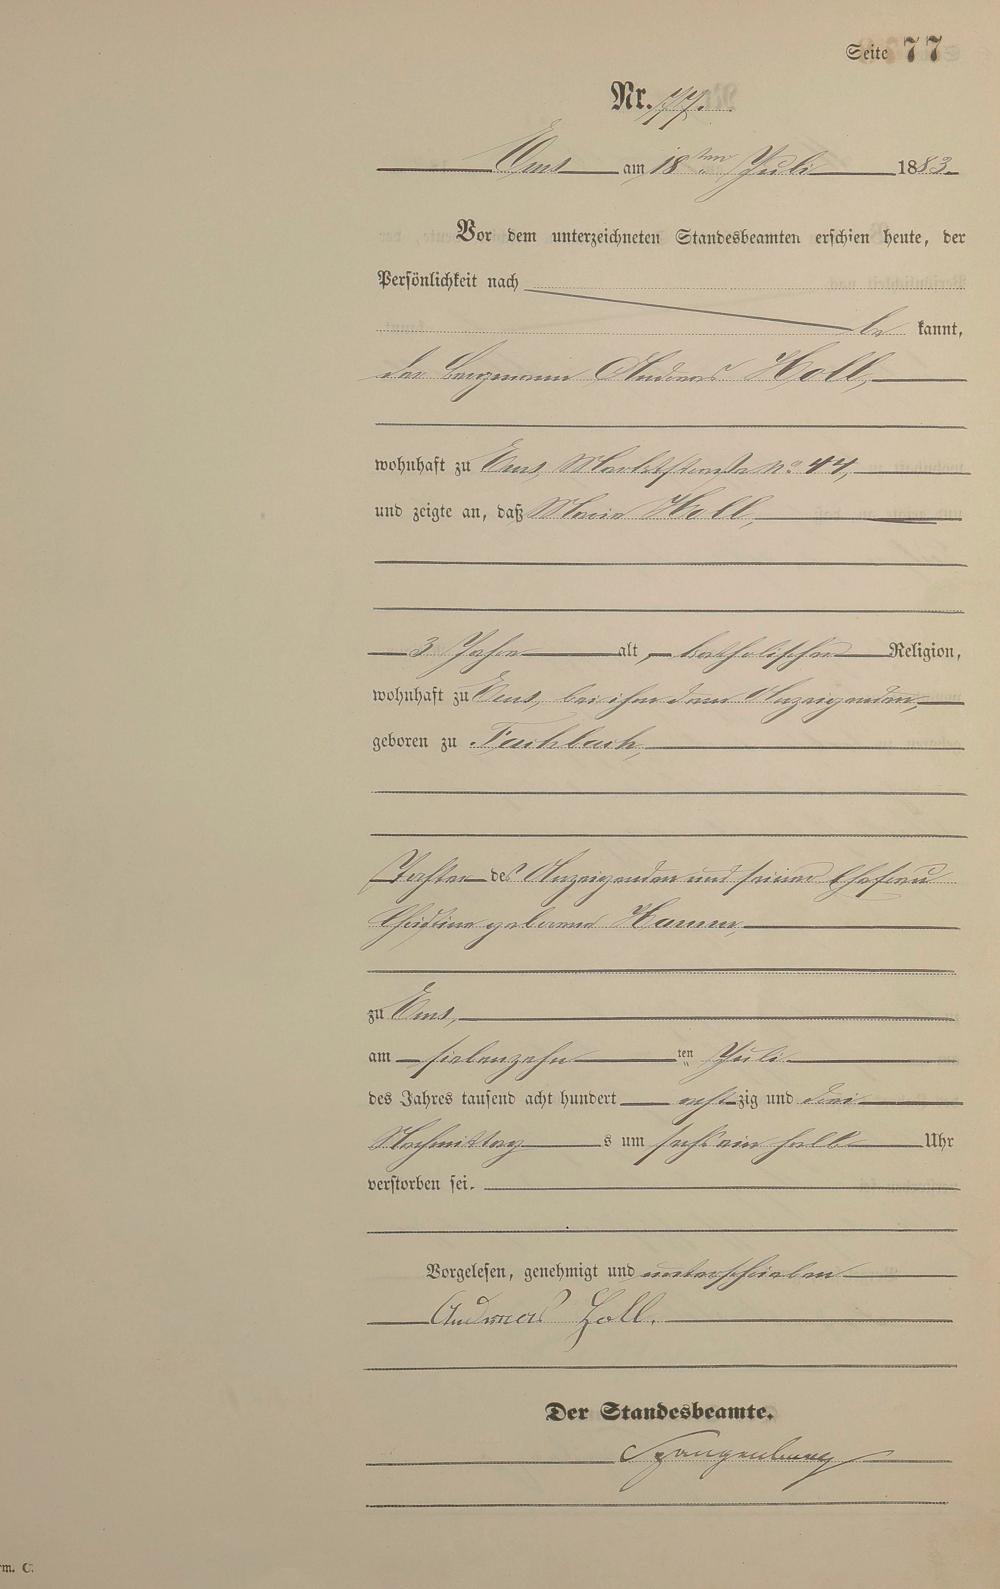 Seite 77
Nr. 77.
Ems am 18ten Juli 1883.
Vor dem unterzeichneten Standesbeamten erschien heute, der
Persönlichkeit nach
be kannt,
der Bergmann Andreas Holl,
wohnhaft zu Ems, Marktstraße No 44,
und zeigte an, daß Maria Holl,
3 Jahre alt, katholischer Religion,
wohnhaft zu Ems, bei ihm dem Anzeigenden,
geboren zu Fachbach,
Tochter des Anzeigenden und seiner Ehefrau
Christine geborene Hamm,
zu Ems,
am siebenzehn ten Juli
des Jahres tausend acht hundert acht zig und drei
Nachmittag s um sechs ein halb Uhr
verstorben sei.
Vorgelesen, genehmigt und unterschrieben
Andreas Holl.
Der Standesbeamte.
Spangenberg
rm. C.